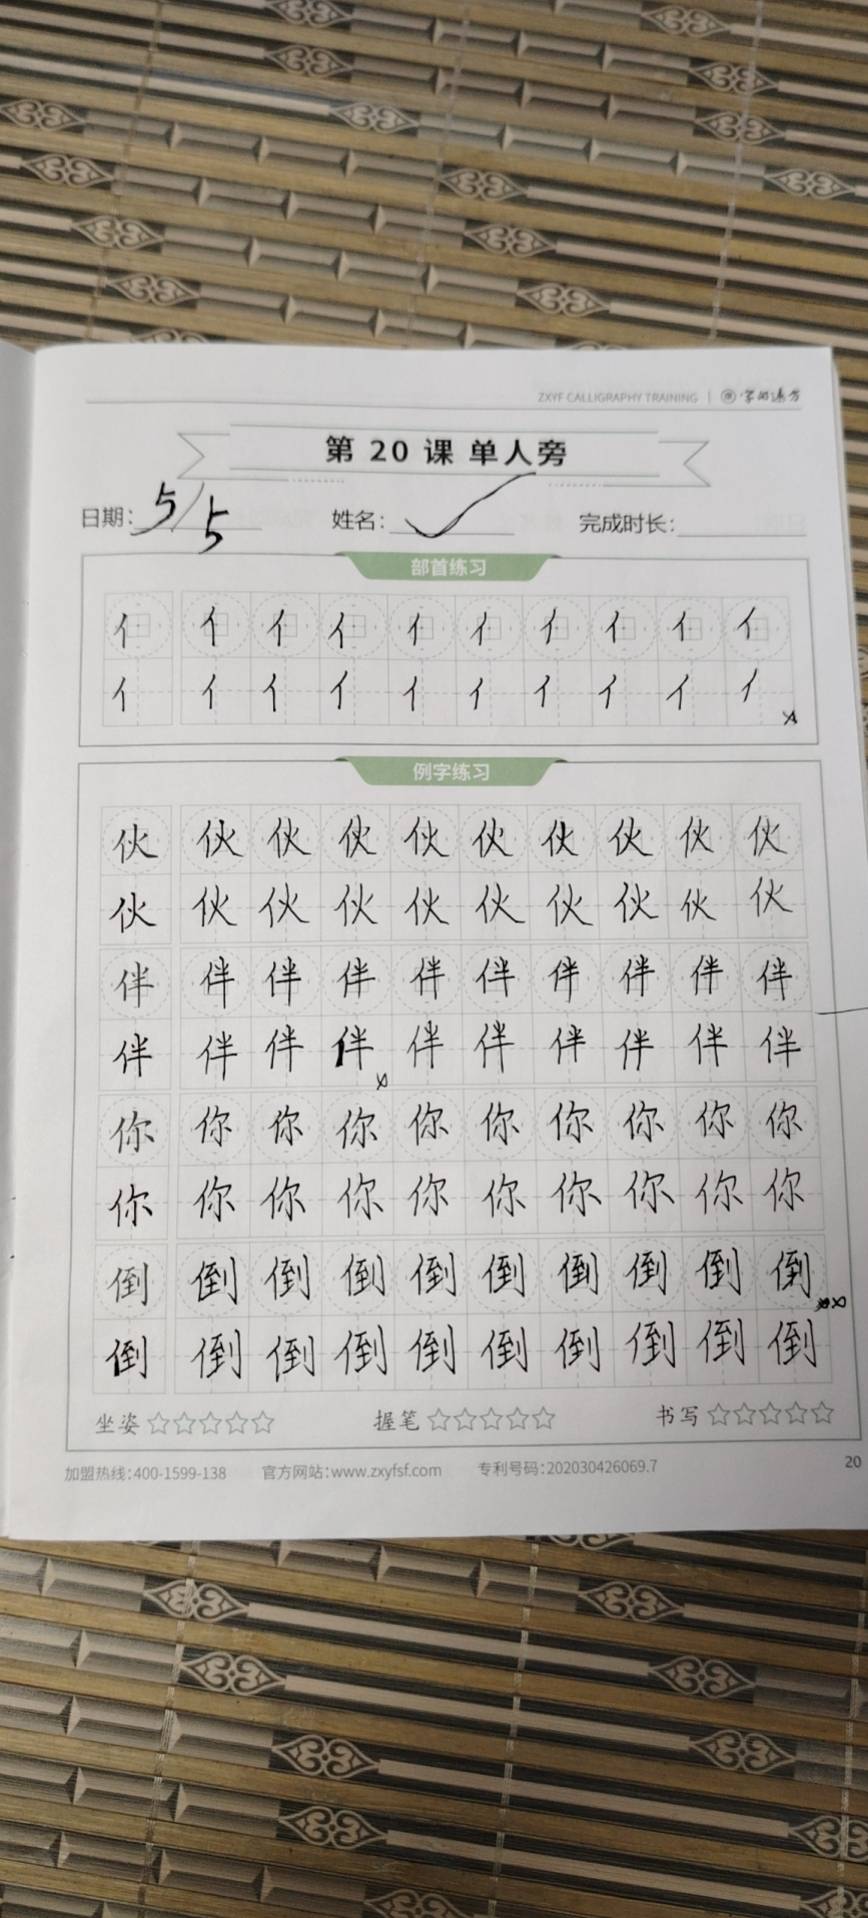 ZXYF CALLIGRAPHY TRAINING | 字必速方
第 20 课 单人旁
日期: 5/5 姓名: 完成时长:
部首练习
亻 亻 亻 亻 亻 亻 亻 亻 亻 亻
亻 亻 亻 亻 亻 亻 亻 亻 亻 亻
例字练习
伙 伙 伙 伙 伙 伙 伙 伙 伙 伙
伙 伙 伙 伙 伙 伙 伙 伙 伙 伙
伴 伴 伴 伴 伴 伴 伴 伴 伴 伴
伴 伴 伴 伴 伴 伴 伴 伴 伴 伴
你 你 你 你 你 你 你 你 你 你
你 你 你 你 你 你 你 你 你 你
倒 倒 倒 倒 倒 倒 倒 倒 倒 倒
倒 倒 倒 倒 倒 倒 倒 倒 倒 倒
坐姿 ☆☆☆☆☆ 握笔 ☆☆☆☆☆ 书写 ☆☆☆☆☆
加盟热线:400-1599-138 官方网站:www.zxyfsf.com 专利号码:202030426069.7 20